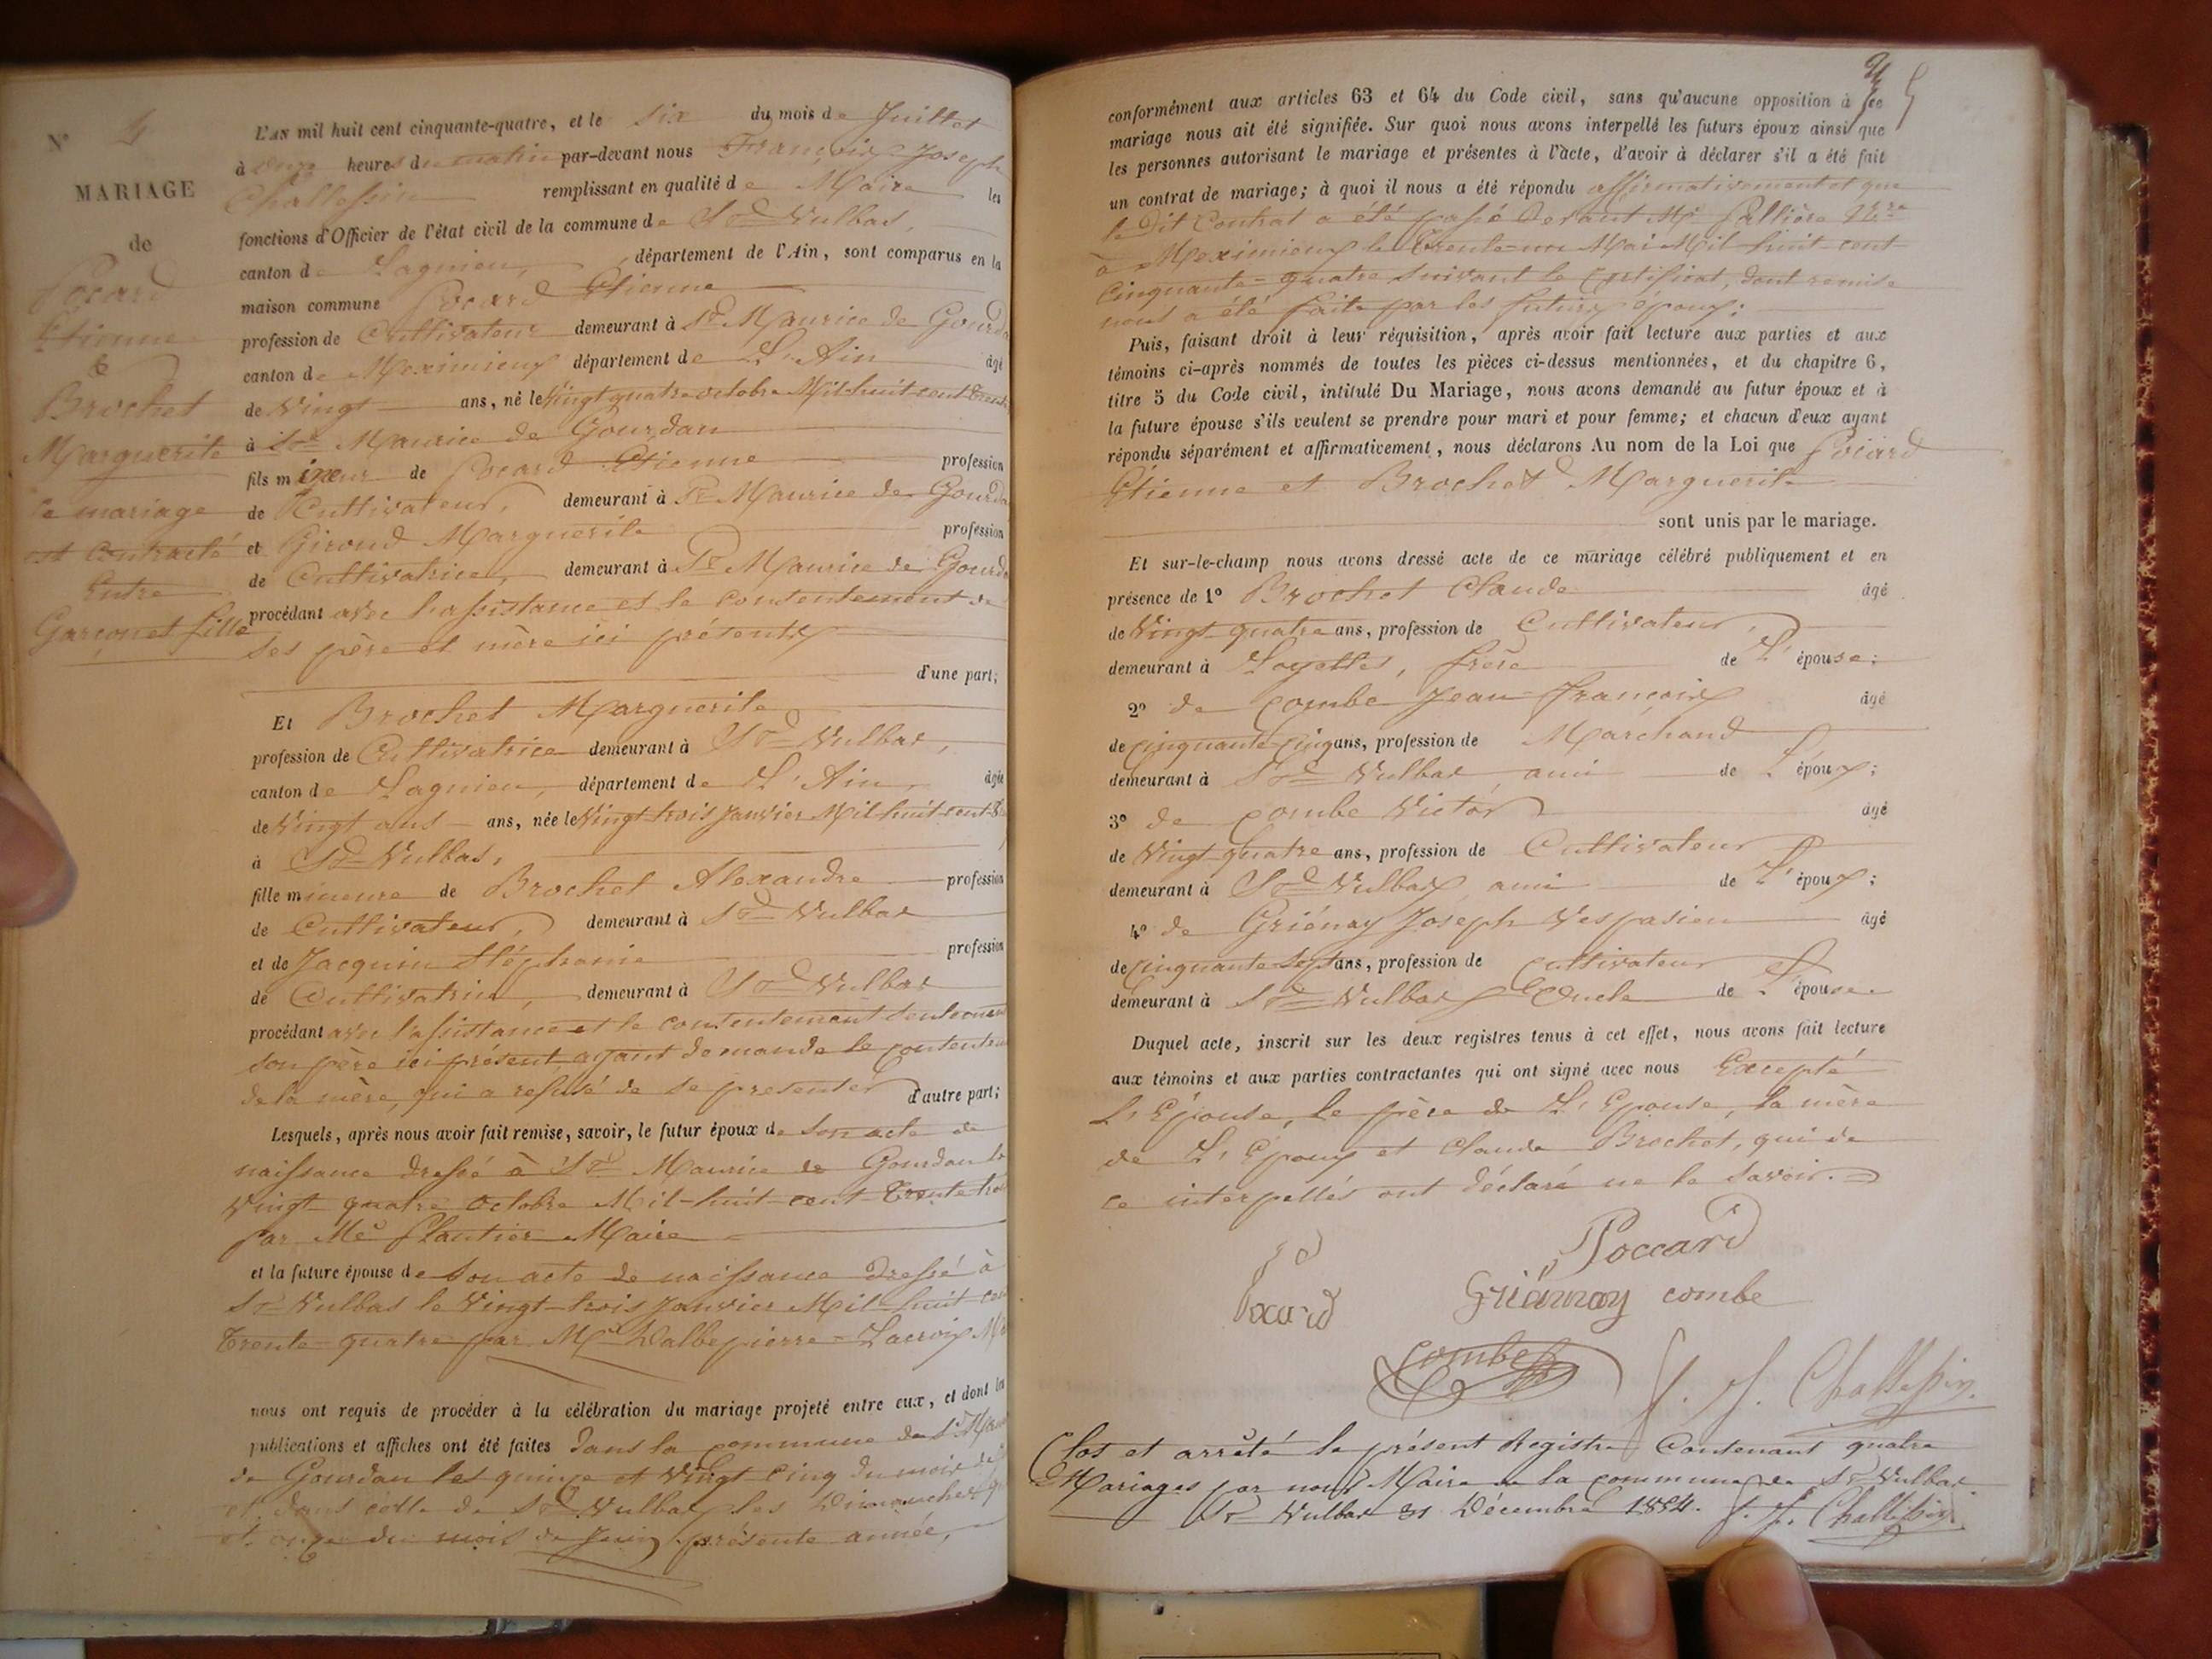 N° 4
MARIAGE
de
Pocard
Etienne
&
Brochet
Marguerite
le mariage
est contracté
Entre
Garçon et fille
L'AN mil huit cent cinquante-quatre, et le six du mois de Juillet
à onze heures du matin par-devant nous François Joseph
Challessin remplissant en qualité de Maire les
fonctions d'Officier de l'état civil de la commune de St Vulbas,
canton de Lagnieu, département de l'Ain, sont comparus en la
maison commune Pocard Etienne
profession de Cultivateur demeurant à St Maurice de Gourda
canton de Meximieux département de L'Ain âgé
de Vingt ans, né le Vingt quatre octobre Mil huit cent trente
à St Maurice de Gourdan
fils mineur de Pocard Etienne profession
de Cultivateur, demeurant à St Maurice de Gourda
et Giroud Marguerite profession
de Cultivatrice, demeurant à St Maurice de Gourda
procédant avec l'assistance et le consentement de
ses père et mère ici présents
d'une part;
Et Brochet Marguerite
profession de Cultivatrice demeurant à St Vulbas,
canton de Lagnieu, département de L'Ain, âgée
de Vingt ans ans, née le Vingt trois Janvier Mil huit cent
à St Vulbas,
fille mineure de Brochet Alexandre profession
de Cultivateur, demeurant à St Vulbas
et de Jacquin Stéphanie profession
de Cultivatrice, demeurant à St Vulbas
procédant avec l'assistance et le consentement seulement
son père ici présent, ayant demandé le consentem
de la mère, qui a refusé de se presenter d'autre part;
Lesquels, après nous avoir fait remise, savoir, le futur époux de son acte de
naissance dressé à St Maurice de Gourdan le
Vingt quatre Octobre Mil-huit-cent Trente trois
par Me Plantier Maire
et la future épouse de son acte de naissance dressé à
St Vulbas le Vingt-trois Janvier Mil-huit-cen
Trente-quatre par Mr Dalbepierre-Lacroix
nous ont requis de procéder à la célébration du mariage projeté entre eux, et dont les
publications et affiches ont été faites dans la commune de St Mau
de Gourdan les quinze et Vingt-cinq du mois de
et dans celle de St Vulbas les Dimanches
et onze du mois de Juin présente année,
conformément aux articles 63 et 64 du Code civil, sans qu'aucune opposition à ce
mariage nous ait été signifiée. Sur quoi nous avons interpellé les futurs époux ainsi que
les personnes autorisant le mariage et présentes à l'acte, d'avoir à déclarer s'il a été fait
un contrat de mariage; à quoi il nous a été répondu affirmativement et que
le dit Contrat a été passé devant Me Pallière Nre
à Meximieux le Trente-un Mai Mil-huit-cent-
Cinquante-quatre suivant le Certificat, dont remise
nous a été faite par les futurs époux;
Puis, faisant droit à leur réquisition, après avoir fait lecture aux parties et aux
témoins ci-après nommés de toutes les pièces ci-dessus mentionnées, et du chapitre 6,
titre 5 du Code civil, intitulé Du Mariage, nous avons demandé au futur époux et à
la future épouse s'ils veulent se prendre pour mari et pour femme; et chacun d'eux ayant
répondu séparément et affirmativement, nous déclarons Au nom de la Loi que Pocard
Etienne et Brochet Marguerite
sont unis par le mariage.
Et sur-le-champ nous avons dressé acte de ce mariage célébré publiquement et en
présence de 1° Brochet Claude âgé
de Vingt quatre ans, profession de Cultivateur,
demeurant à Loyettes, frère de L' épouse;
2° de Combe Jean François âgé
de Cinquante Cinq ans, profession de Marchand
demeurant à St Vulbas ami de L' époux;
3° de Combe Victor âgé
de Vingt quatre ans, profession de Cultivateur
demeurant à St Vulbas ami de L' époux;
4° de Griénay Joseph Vespasien âgé
de Cinquante Sept ans, profession de Cultivateur
demeurant à St Vulbas Oncle de L' épouse.
Duquel acte, inscrit sur les deux registres tenus à cet effet, nous avons fait lecture
aux témoins et aux parties contractantes qui ont signé avec nous Excepté
L'Épouse, le père de L'Epouse, la mère
de L'Époux et Claude Brochet, qui de
ce interpellés ont déclaré ne le savoir.
Poccard
Pocard
Griénnay combe
Combe
f. J. Challessin
Clos et arrêté le présent Registre Contenant quatre
Mariages par nous Maire de la commune de St Vulbas
St Vulbas 31 Décembre 1854. f. J. Challessin